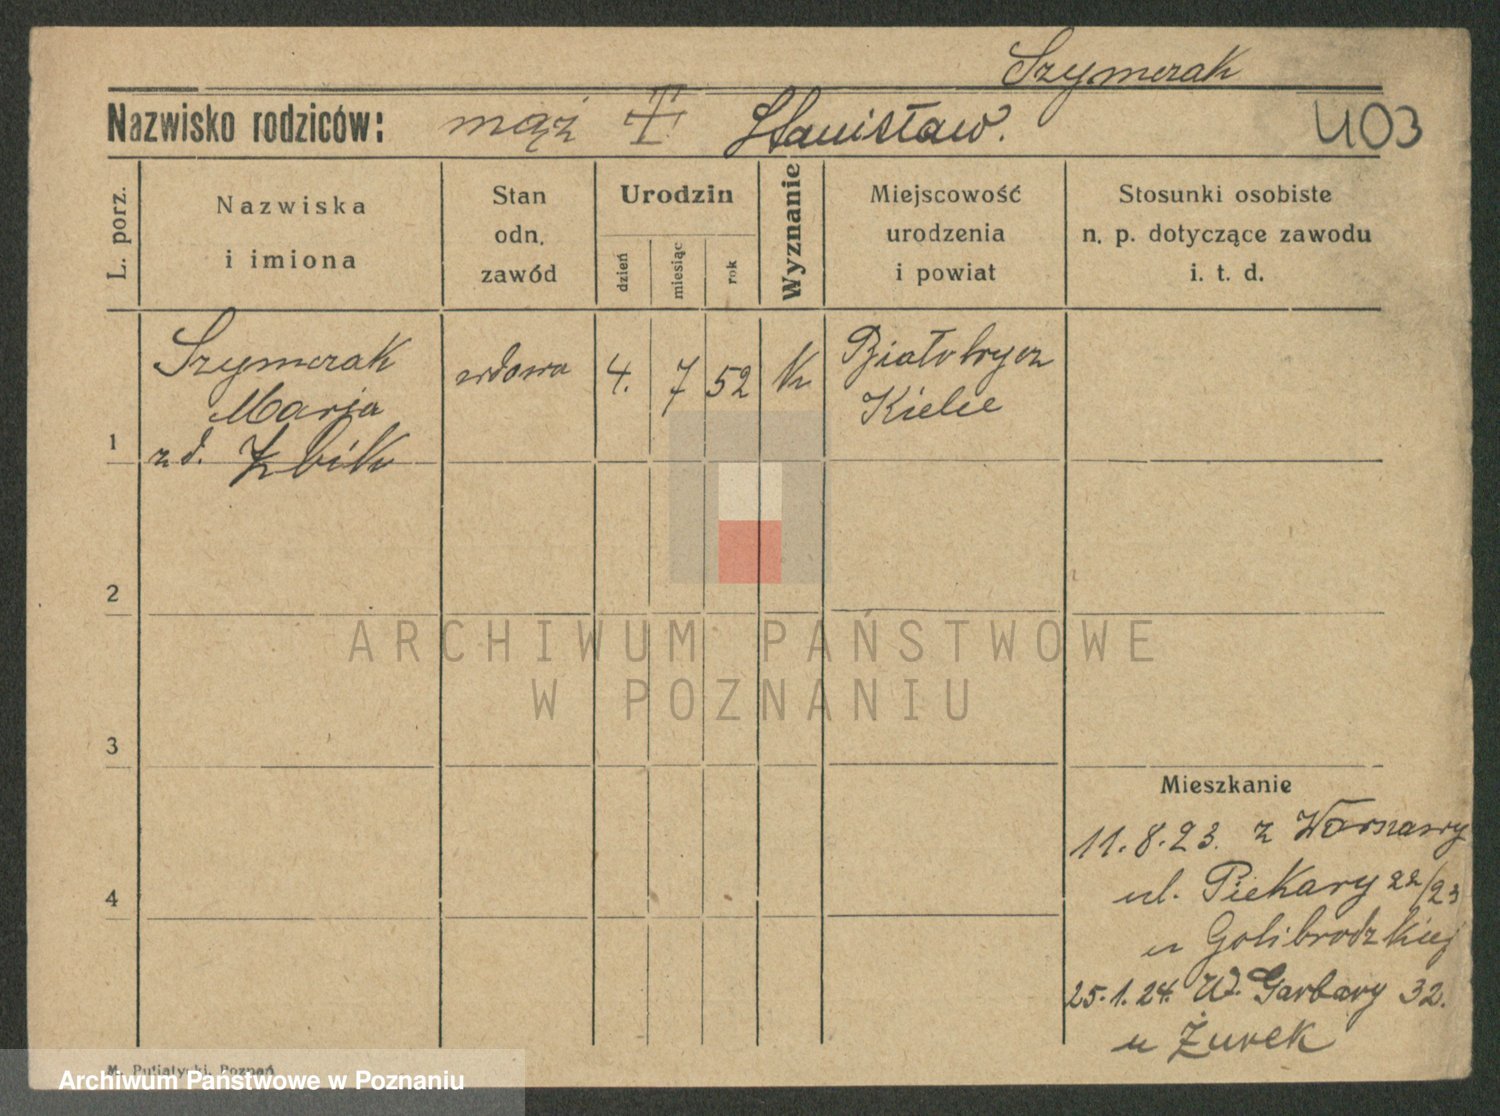 Szymczak
Nazwisko rodziców: mąż Stanisław.
403
L. porz.
Nazwiska
i imiona
Stan
odn.
zawód
Urodzin
dzień
miesiąc
rok
Wyznanie
Miejscowość
urodzenia
i powiat
Stosunki osobiste
n. p. dotyczące zawodu
i. t. d.
Szymczak wdowa 4. 7 52 k
Marja
1 zd. Żbik
Kielce
2
ARCHIWUM PAŃSTWOWE
W POZNANIU
3
Mieszkanie
11.8.23. z Warszawy
4
ul. Piekary 22/23
u Golibrodzkiej
25.1.24. W. Garbary 32.
u Żurek
M. Putiatycki, Poznań
Archiwum Państwowe w Poznaniu